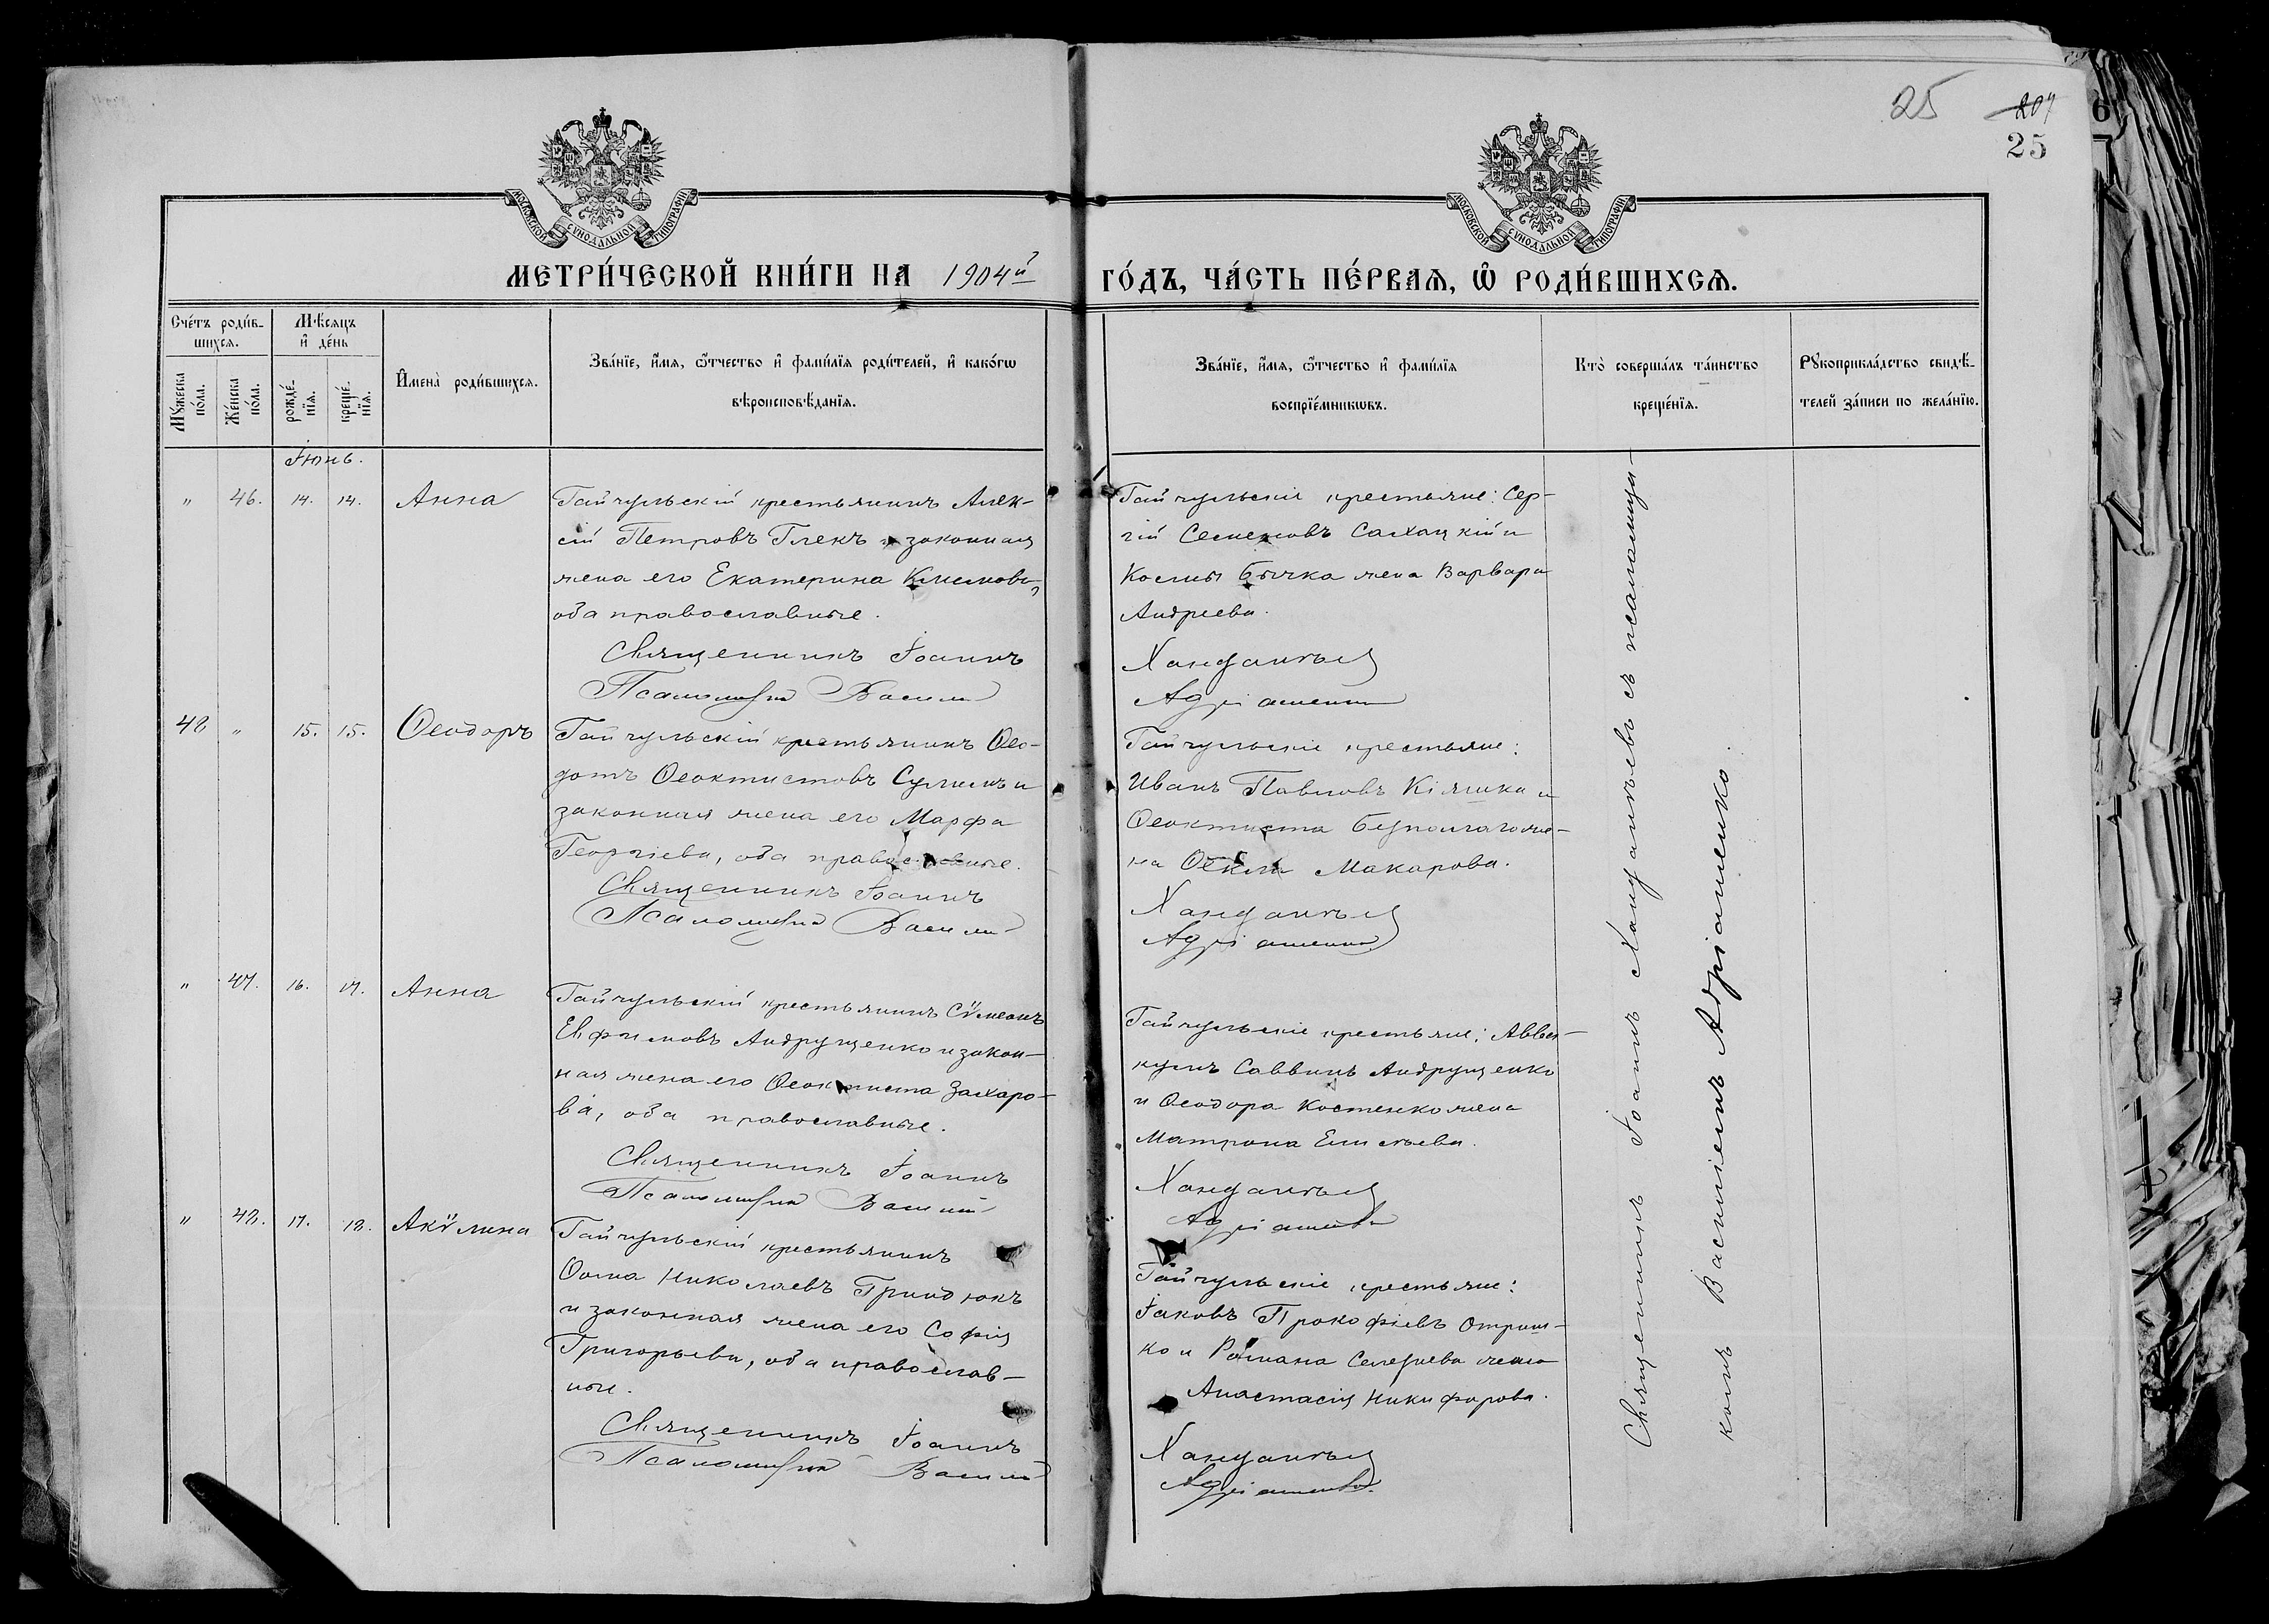 25
207
25
МОСКОВСКОЙ СѴНОДАЛЬНОЙ ТИПОГРАФІИ
МОСКОВСКОЙ СѴНОДАЛЬНОЙ ТИПОГРАФІИ
МЕТРИ́ЧЕСКОЙ КНИ́ГИ НА 1904й
ГО́ДЪ, ЧА́СТЬ ПЕ́РВАѦ, Ѡ҆ РОДИ́ВШИХСѦ.
Сче́тъ роди́в-
шихсѧ.
Мꙋ́жеска
по́ла.
Же́нска
по́ла.
Мѣ́сѧцъ
и҆ де́нь
рожде́-
нїѧ.
креще́-
нїѧ.
И҆мена̀ роди́вшихсѧ.
Зва́нїе, и҆́мѧ, ѻ҆́тчество и҆ фами́лїѧ роди́телей, и҆ како́гѡ
вѣроисповѣ́данїѧ.
Зва́нїе, и҆́мѧ, ѻ҆́тчество и҆ фами́лїѧ
воспрїе́мникѡвъ.
Кто̀ соверша́лъ та́инство
креще́нїѧ.
Рꙋкоприкла́дство свидѣ́-
телей за́писи по жела́нїю.
Іюнь.
" 46. 14. 14. Анна
Гайчульскій крестьянинъ Алек-
сій Петровъ Глекъ и законная
жена его Екатерина Климова,
оба православные.
Священникъ Іоаннъ
Псаломщикъ Василій
Гайчульскіе крестьяне: Сер-
гій Семеновъ Сахацкій и
Космы Бычка жена Варвара
Андреева.
Ханданьев
Адріаненко
48 " 15. 15. Ѳеодоръ
Гайчульскій крестьянинъ Ѳео-
дотъ Ѳеоктистовъ и
законная жена его Марфа
Георгіева, оба православные.
Священникъ Іоаннъ
Псаломщикъ Василій
Гайчульскіе крестьяне:
Иванъ Павловъ Кіяшка и
Ѳеоктиста же-
на Макарова.
Ханданьев
Адріаненко
" 47. 16. 17. Анна
Гайчульскій крестьянинъ Сѵмеонъ
Евфимовъ Андрущенко и закон-
ная жена его Ѳеоктиста Захаро-
ва, оба православные.
Священникъ Іоаннъ
Псаломщикъ Василій
Гайчульскіе крестьяне: Авва-
кумъ Саввинъ Андрущенко
и Ѳеодора Костенко жена
Матрона Елисѣева.
Ханданьев
Адріаненко
" 48. 17. 18. Акѵлина
Гайчульскій крестьянинъ
Ѳома Николаевъ Гриндюкъ
и законная жена его Софія
Григорьева, оба православ-
ные.
Священникъ Іоаннъ
Псаломщикъ Василій
Гайчульскіе крестьяне:
Іаковъ Прокофіевъ Отриш-
ко и Романа Селезнева жена
Анастасія Никифорова.
Ханданьев
Адріаненко
Священникъ Іоаннъ Ханданьевъ съ псаломщи-
комъ Василіемъ Адріаненко.